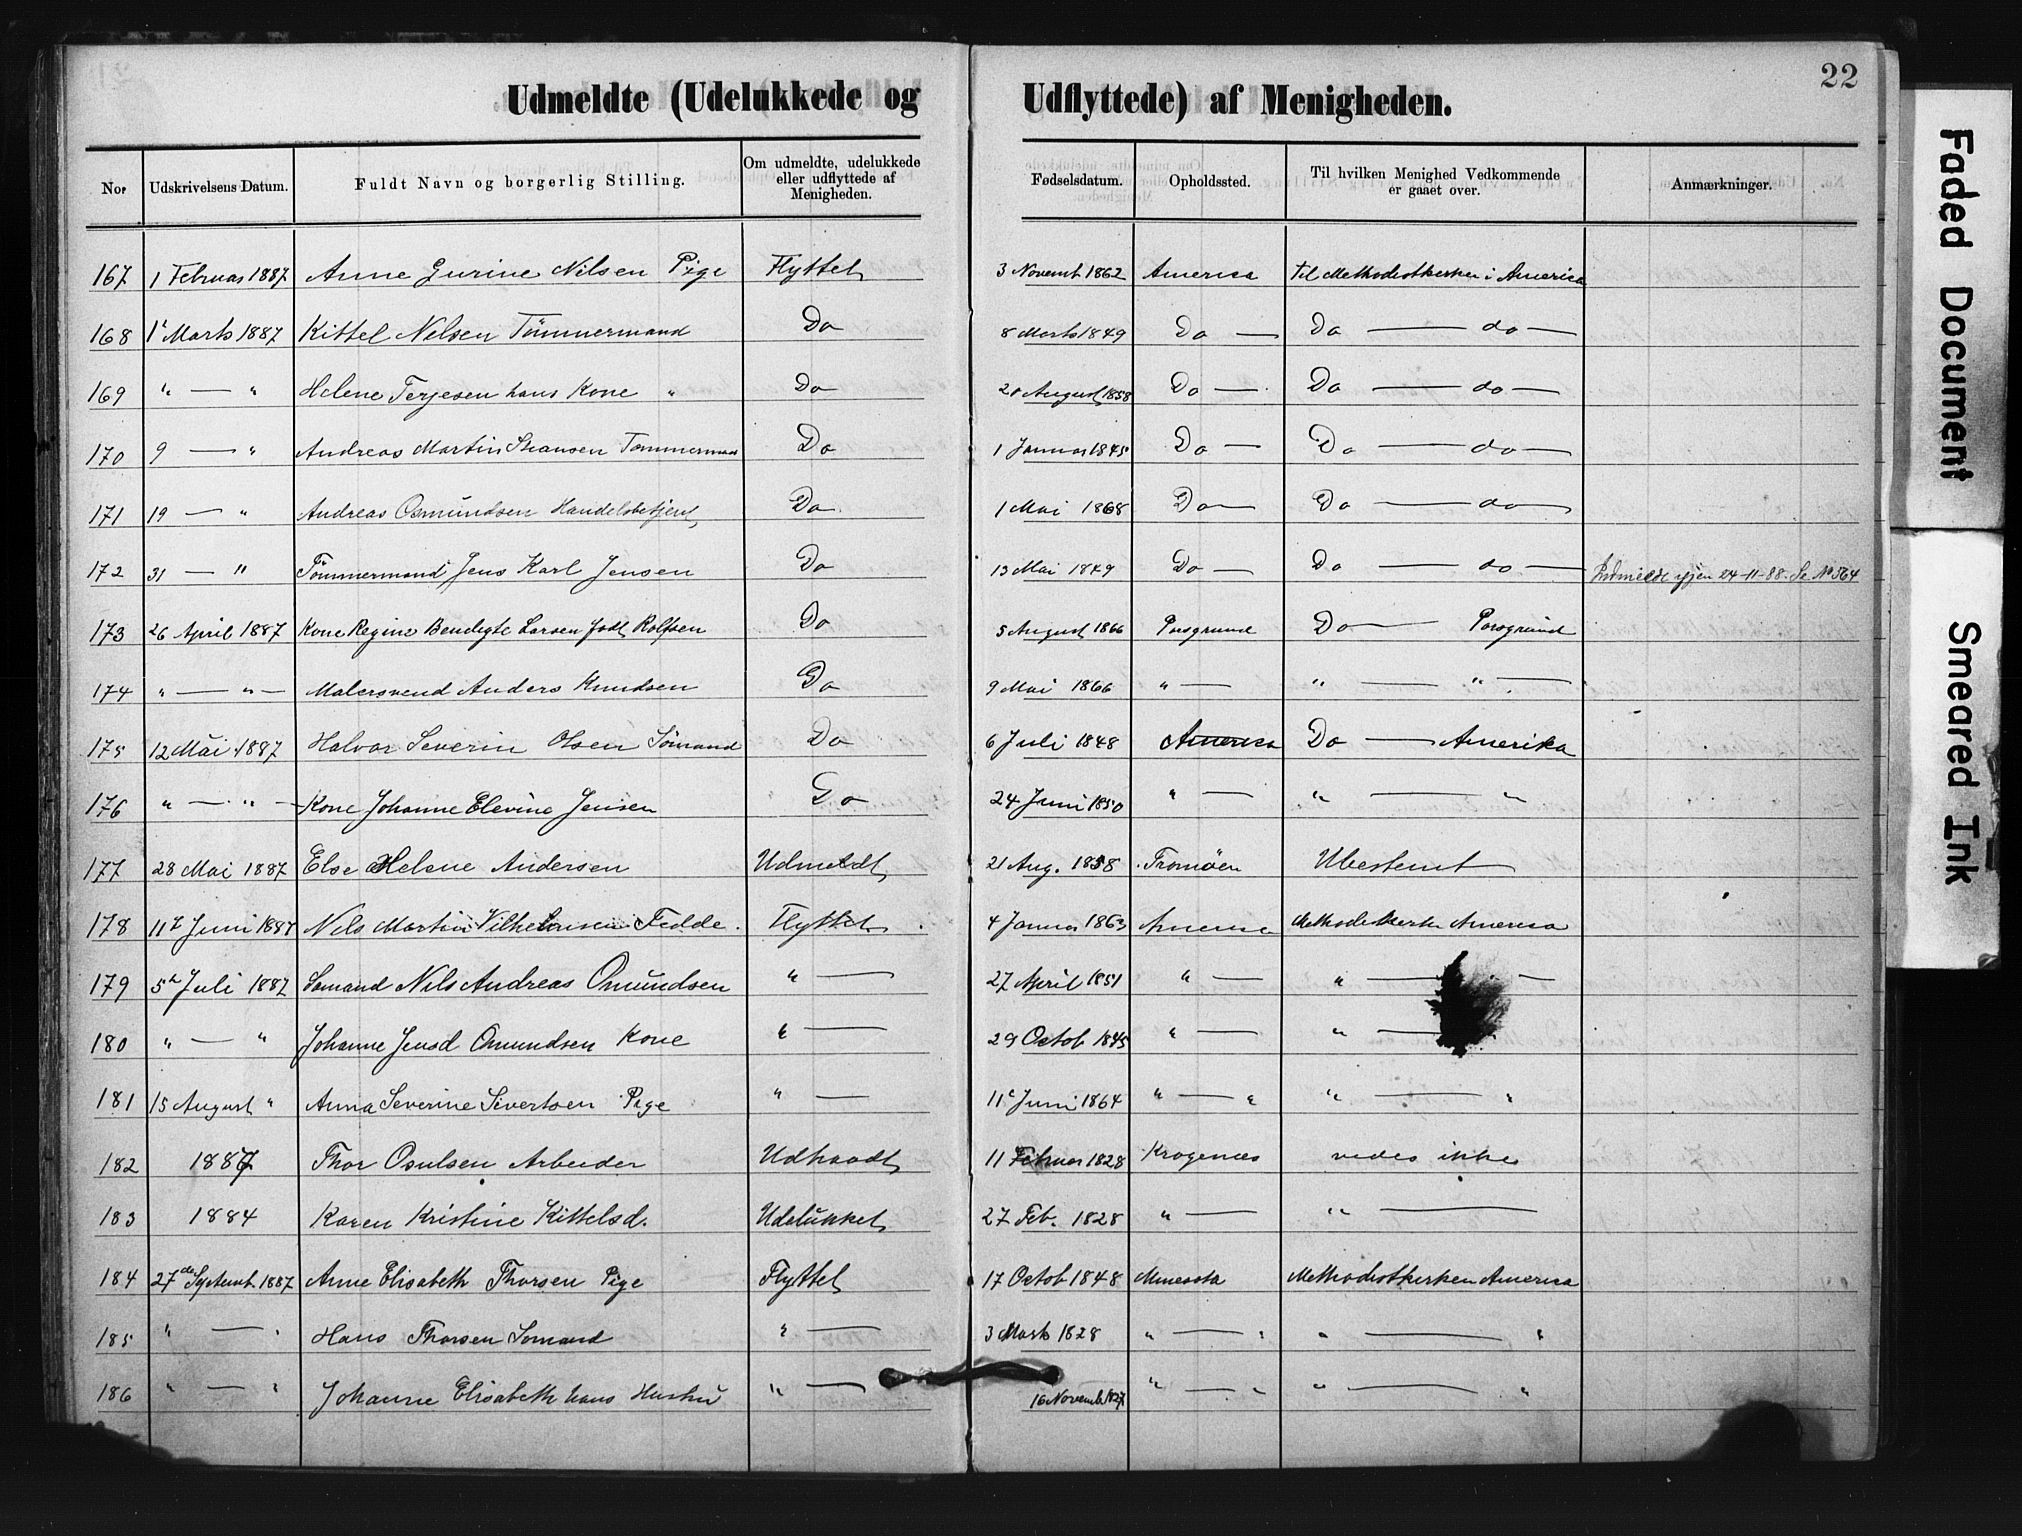 22
Udmeldte (Udelukkede og Udflyttede) af Menigheden.
No. Udskrivelsens Datum. Fuldt Navn og borgerlig Stilling. Om udmeldte, udelukkede eller udflyttede af Menigheden. Fødselsdatum. Opholdssted. Til hvilken Menighed Vedkommende er gaaet over. Anmærkninger.
167 1 Februar 1887 Anne Gurine Nilsen Pige Flyttet 3 Novemb 1862 America til Methodistkirken i America
168 1 Marts 1887 Kittel Nelsen Tømmermand Do 8 Marts 1849 Do — Do — do —
169 " — " Helene Terjesen hans Kone " Do 20 August 1858 Do — Do — do —
170 9 — " Andreas Martin Tømmermand Do 1 Januar 1845 Do — Do — do —
171 19 — " Andreas Osmundsen Handelsbetjent Do 1 Mai 1868 Do — Do — do —
172 31 — " Tømmermand Jens Karl Jensen Do 13 Mai 1849 Do — Do — do — Indmeldt igjen 24-11-88. Se No 564
173 26 April 1887 Kone Regine Bendigte Larsen født Rolfsen Do 5 August 1866 Porsgrund Do — Porsgrund
174 " — " — Malersvend Anders Knudsen Do 9 Mai 1866 " — " — " —
175 12 Mai 1887 Halvor Severin Olsen Sømand Do 6 Juli 1848 America Do — Amerika
176 " — " — Kone Johanne Elevine Jensen Do 24 Juni 1850 " — " — "
177 28 Mai 1887 Else Helene Andersen Udmeldt 21 Aug. 1858 Tromøen Ubestemt
178 11 Juni 1887 Nils Martin Vilhelmsen Fedde. Flyttet 4 Januar 1863 America Methodistkirken America
179 5 Juli 1887 Sømand Nils Andreas Omundsen " — 27 April 1851 " — " — —
180 " — " Johanne Jensd Omundsen Kone " — 29 Octob 1845 " — " —
181 15 August " Anna Severine Sivertsen Pige " — 11 Juni 1864 " — " " — "
182 1887 Thor Osulsen Arbeider Udtraadt 11 Februar 1828 Krogenes vedes ikke
183 1884 Karen Kristine Kittelsd. Udelukket 27 Feb. 1828 " — " —
184 27de Septemb 1887 Anne Elisabeth Thorsen Pige Flyttet 17 Octob 1848 Minesota Methodistkirken America
185 " — " Hans Thorsen Sømand " — 3 Marts 1828 " — " " — "
186 " — " Johanne Elisabeth hans Hustru " — 16 Novemb 1827 " — " " — "
Faded Document
Smeared Ink